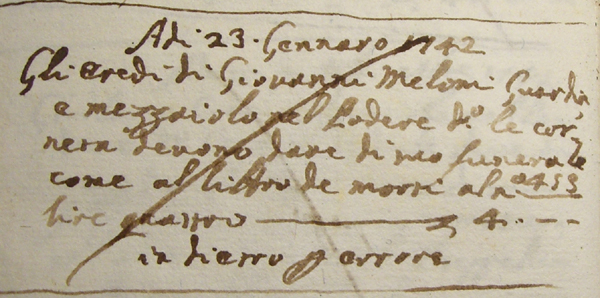 Adi 23. Gennaro 1742
Gli eredi di Giovanni Meloni
e mezzaiolo nel Podere d.º le cor,
nera devono dare di suo funerale
come al libro de morti al nº 453
lire quattro 4. --
in dietro p errore